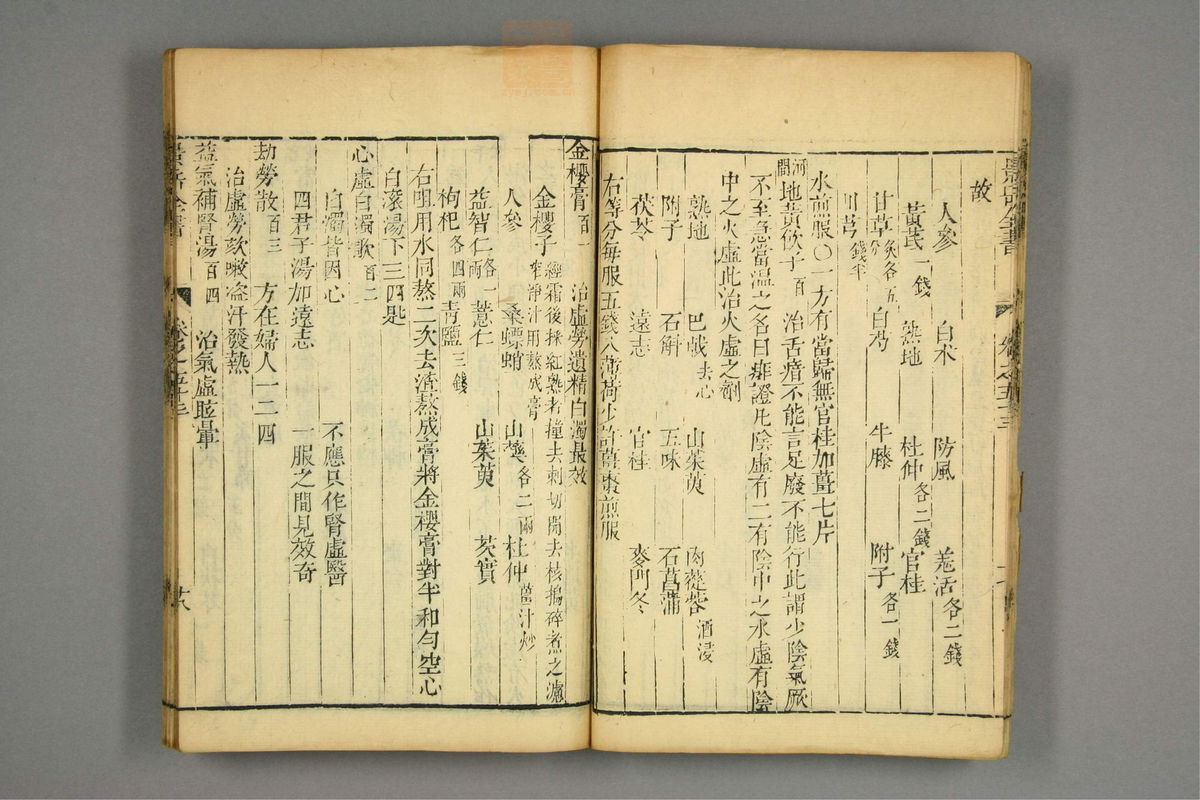 景岳全書 卷之五十三
故
人參 白朮 防風 羗活各二錢
黃芪一錢 熟地 杜仲各二錢 官桂
甘草炙各五分 白芍 牛膝 附子各一錢
川芎錢半
水煎服○一方有當歸無官桂加薑七片
河間地黃飲子百 治舌瘖不能言足廢不能行此謂少陰氣厥
不至急當溫之名曰痱證凡陰虛有二有陰中之水虛有陰
中之火虛此治火虛之劑
熟地 巴戟去心 山茱萸 肉蓯蓉酒浸
附子 石斛 五味 石菖蒲
茯苓 遠志 官桂 麥門冬
右等分每服五錢入薄荷少許薑棗煎服
金櫻膏百一 治虛勞遺精白濁最效
金櫻子經霜後採紅熟者撞去刺切開去核搗碎煮之濾
窄淨汁用熬成膏
人參 桑螵蛸 山藥各二兩 杜仲薑汁炒
益智仁各一兩 薏仁 山茱萸 芡實
枸杞各四兩 青鹽三錢
右咀用水同熬二次去渣熬成膏將金櫻膏對半和勻空心
白滾湯下三四匙
心虛白濁歌百二
白濁皆因心 不應只作腎虛醫
四君子湯加遠志 一服之間見效奇
劫勞散百三 方在婦人一二四
治虛勞欬嗽盜汗發熱
益氣補腎湯百四 治氣虛眩暈
景岳全書 卷之五十三 廿八